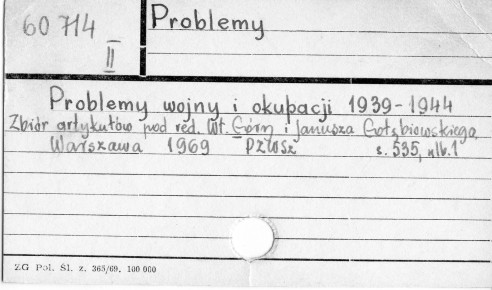 60 714
II
Problemy
Problemy wojny i okupacji 1939-1944
Zbiór artykułów pod red. Wł. Góry i Janusza Gołębiowskiego
Warszawa 1969 PZWSz s. 535, nlb. 1
ZG Pol. Śl. z. 365/69. 100 000